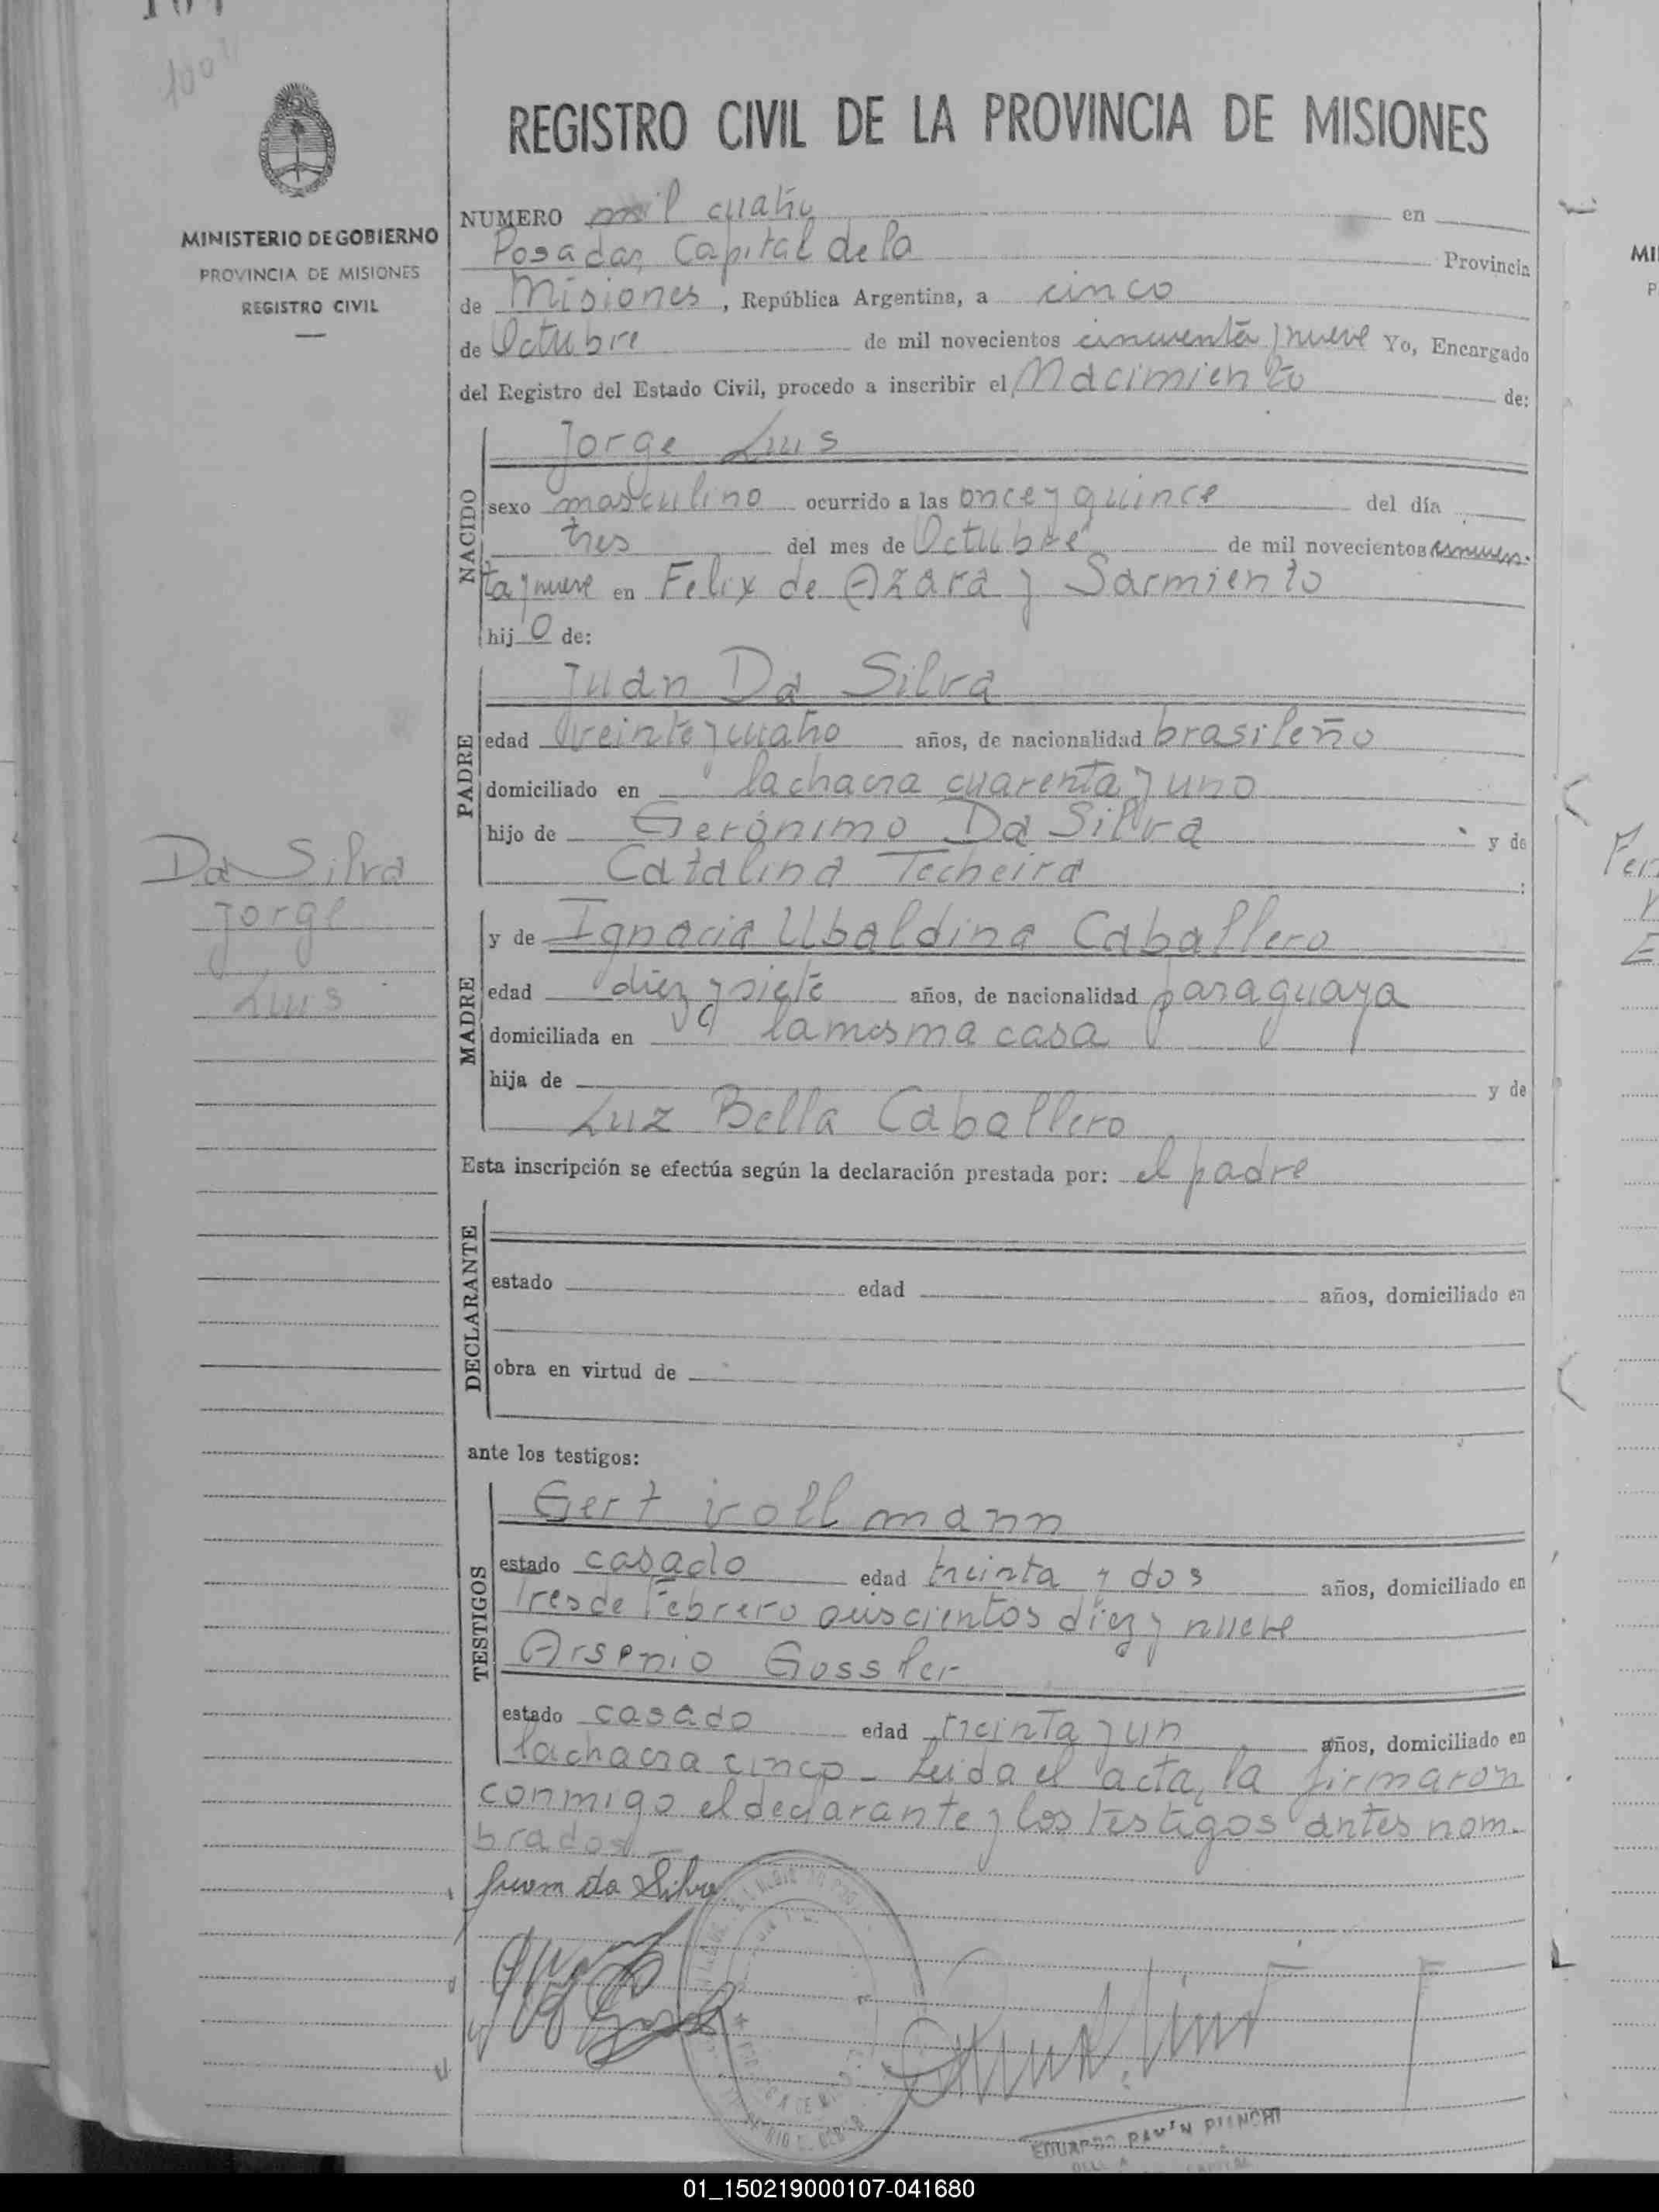 1004
MINISTERIO DE GOBIERNO
PROVINCIA DE MISIONES
REGISTRO CIVIL
Da Silva
Jorge
Luis
REGISTRO CIVIL DE LA PROVINCIA DE MISIONES
NUMERO mil cuatro en
Posadas, Capital de la Provincia
de Misiones, República Argentina, a cinco
de Octubre de mil novecientos cincuenta y nueve Yo, Encargado
del Registro del Estado Civil, procedo a inscribir el Nacimiento de:
NACIDO
Jorge Luis
sexo masculino ocurrido a las once y quince del día
tres del mes de Octubre de mil novecientos cincuen-
ta y nueve en Felix de Azara y Sarmiento
hij o de:
PADRE
Juan Da Silva
edad veinte y cuatro años, de nacionalidad brasileño
domiciliado en la chacra cuarenta y uno
hijo de Gerónimo Da Silva y de
Catalina Techeira
MADRE
y de Ignacia Ubaldina Caballero
edad diez y siete años, de nacionalidad paraguaya
domiciliada en la misma casa
hija de y de
Luz Bella Caballero
Esta inscripción se efectúa según la declaración prestada por: el padre
DECLARANTE
estado edad años, domiciliado en
obra en virtud de
ante los testigos:
TESTIGOS
Gert Vollmann
estado casado edad treinta y dos años, domiciliado en
Tres de Febrero seiscientos diez y nueve
Arsenio Gossler
estado casado edad treinta y un años, domiciliado en
la chacra cinco - Leida el acta, la firmaron
conmigo el declarante y los testigos antes nom-
brados -
Juan da Silva
EDUARDO RAMON BIANCHI
01_150219000107-041680